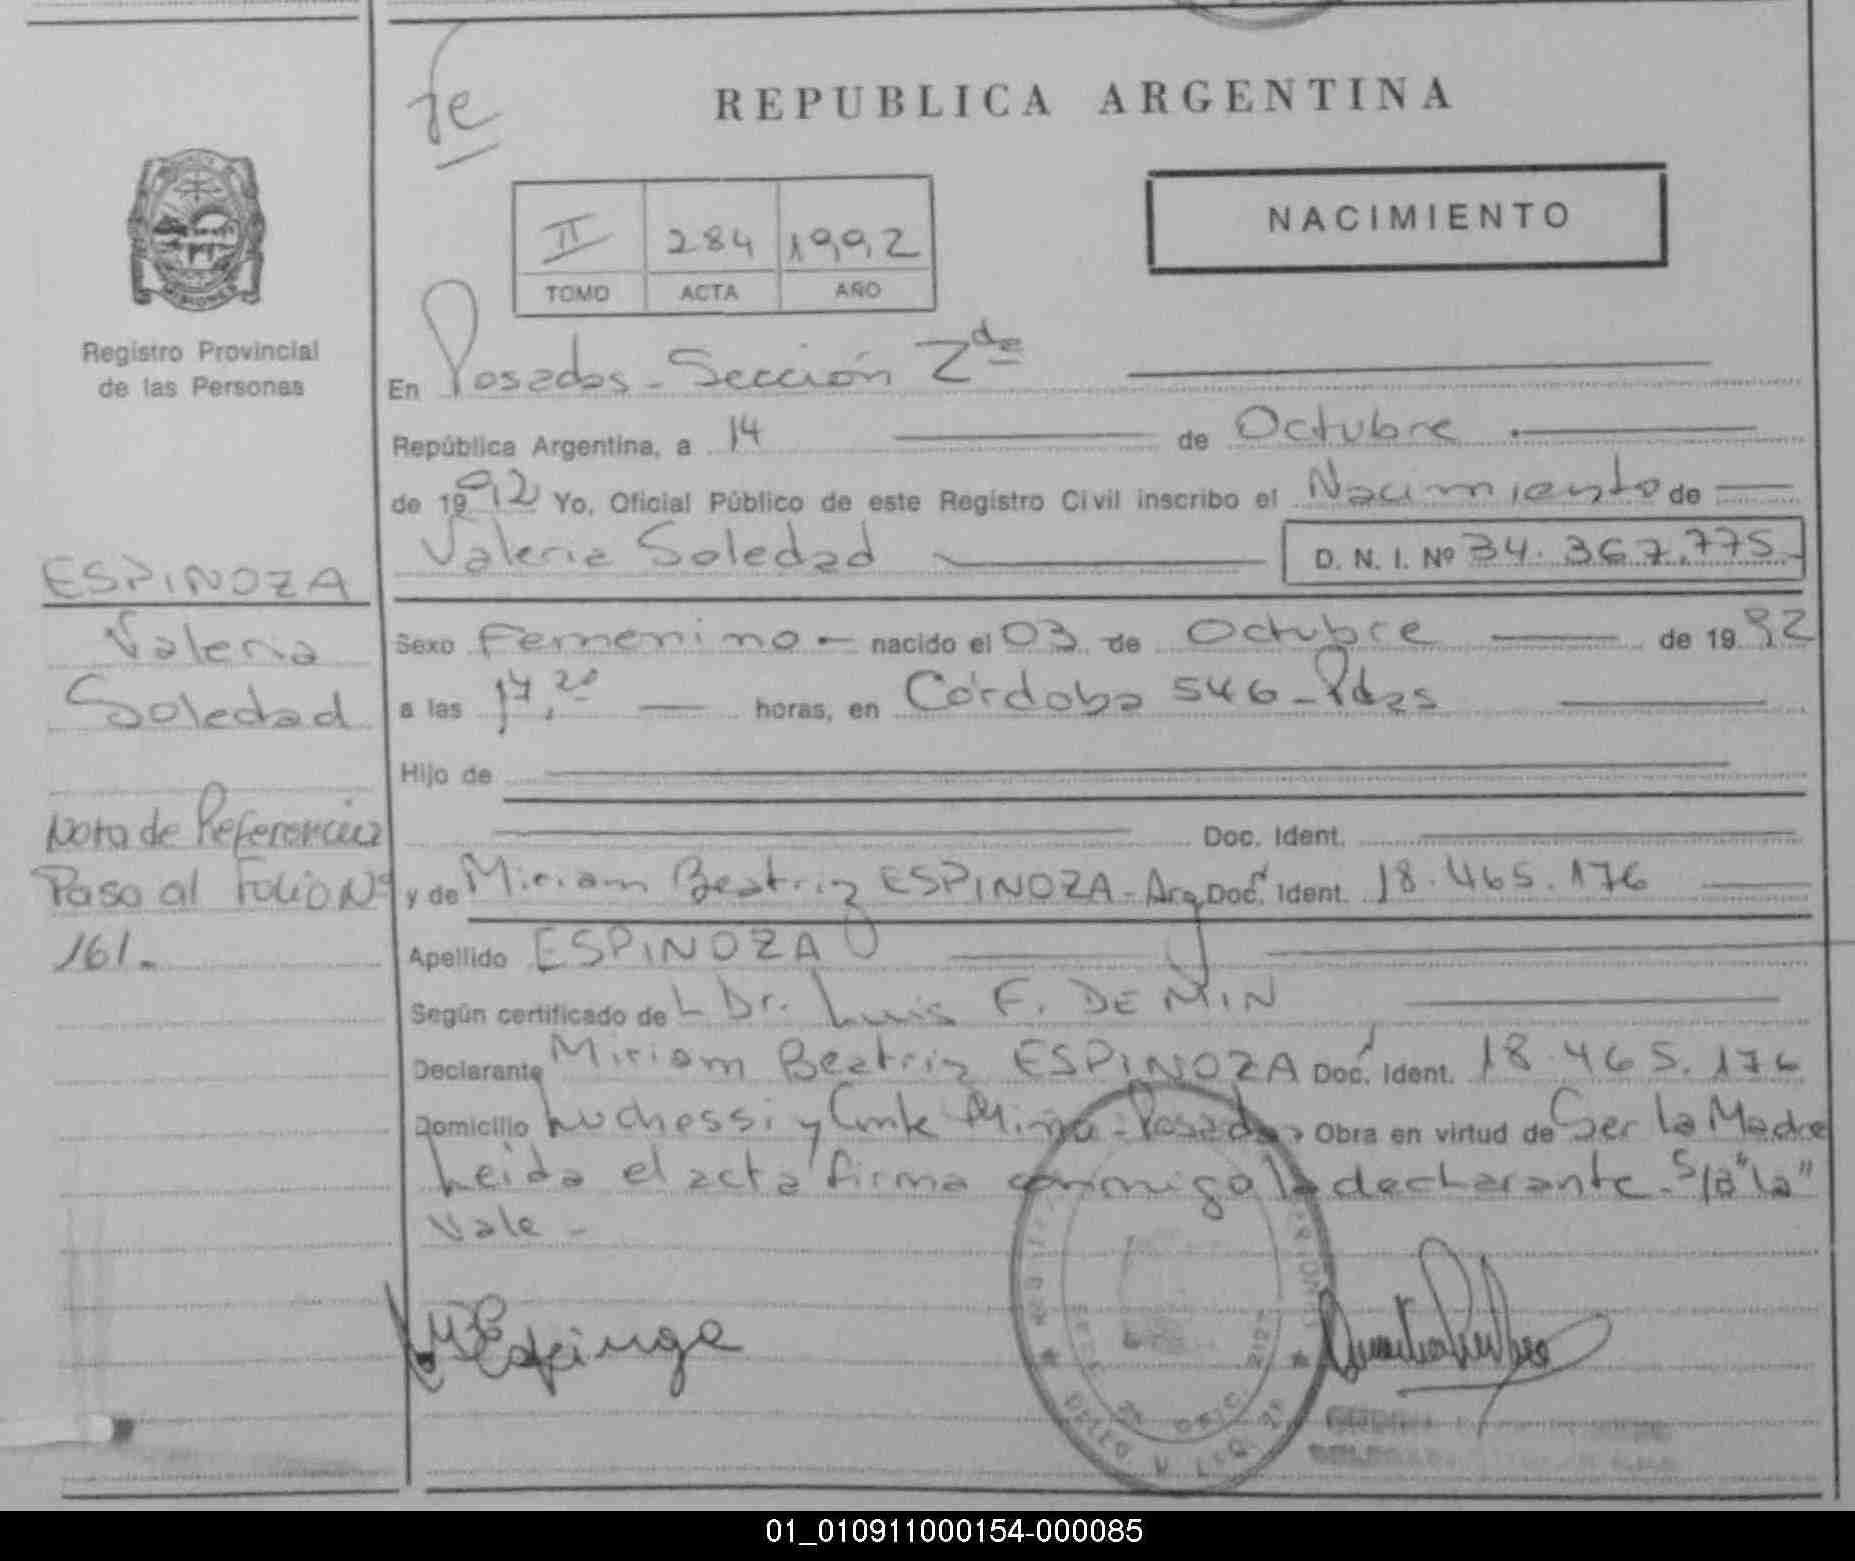 REPUBLICA ARGENTINA
NACIMIENTO
II 284 1992
TOMO ACTA AÑO
MISIONES
Registro Provincial
de las Personas
En Posadas - Sección 2da
República Argentina, a 14 de Octubre
de 1992 Yo, Oficial Público de este Registro Civil inscribo el Nacimiento de
Valeria Soledad D. N. I. Nº 34.367.775
ESPINOZA
Valeria
Soledad
Sexo Femenino - nacido el 03 de Octubre de 1992
a las 17,20 horas, en Córdoba 546 - Pdas
Hijo de
Doc. Ident.
Nota de Referencia
Pasa al Folio Nº
161.
y de Miriam Beatriz ESPINOZA - Arg Doc. Ident. 18.465.176
Apellido ESPINOZA
Según certificado de L Dr. Luis F. DE MIN
Declarante Miriam Beatriz ESPINOZA Doc. Ident. 18.465.176
Domicilio Luchessi y Cmte Miño - Posadas Obra en virtud de Ser la Madre
Leida el acta firma conmigo la declarante. S/a "la"
Vale -
01_010911000154-000085